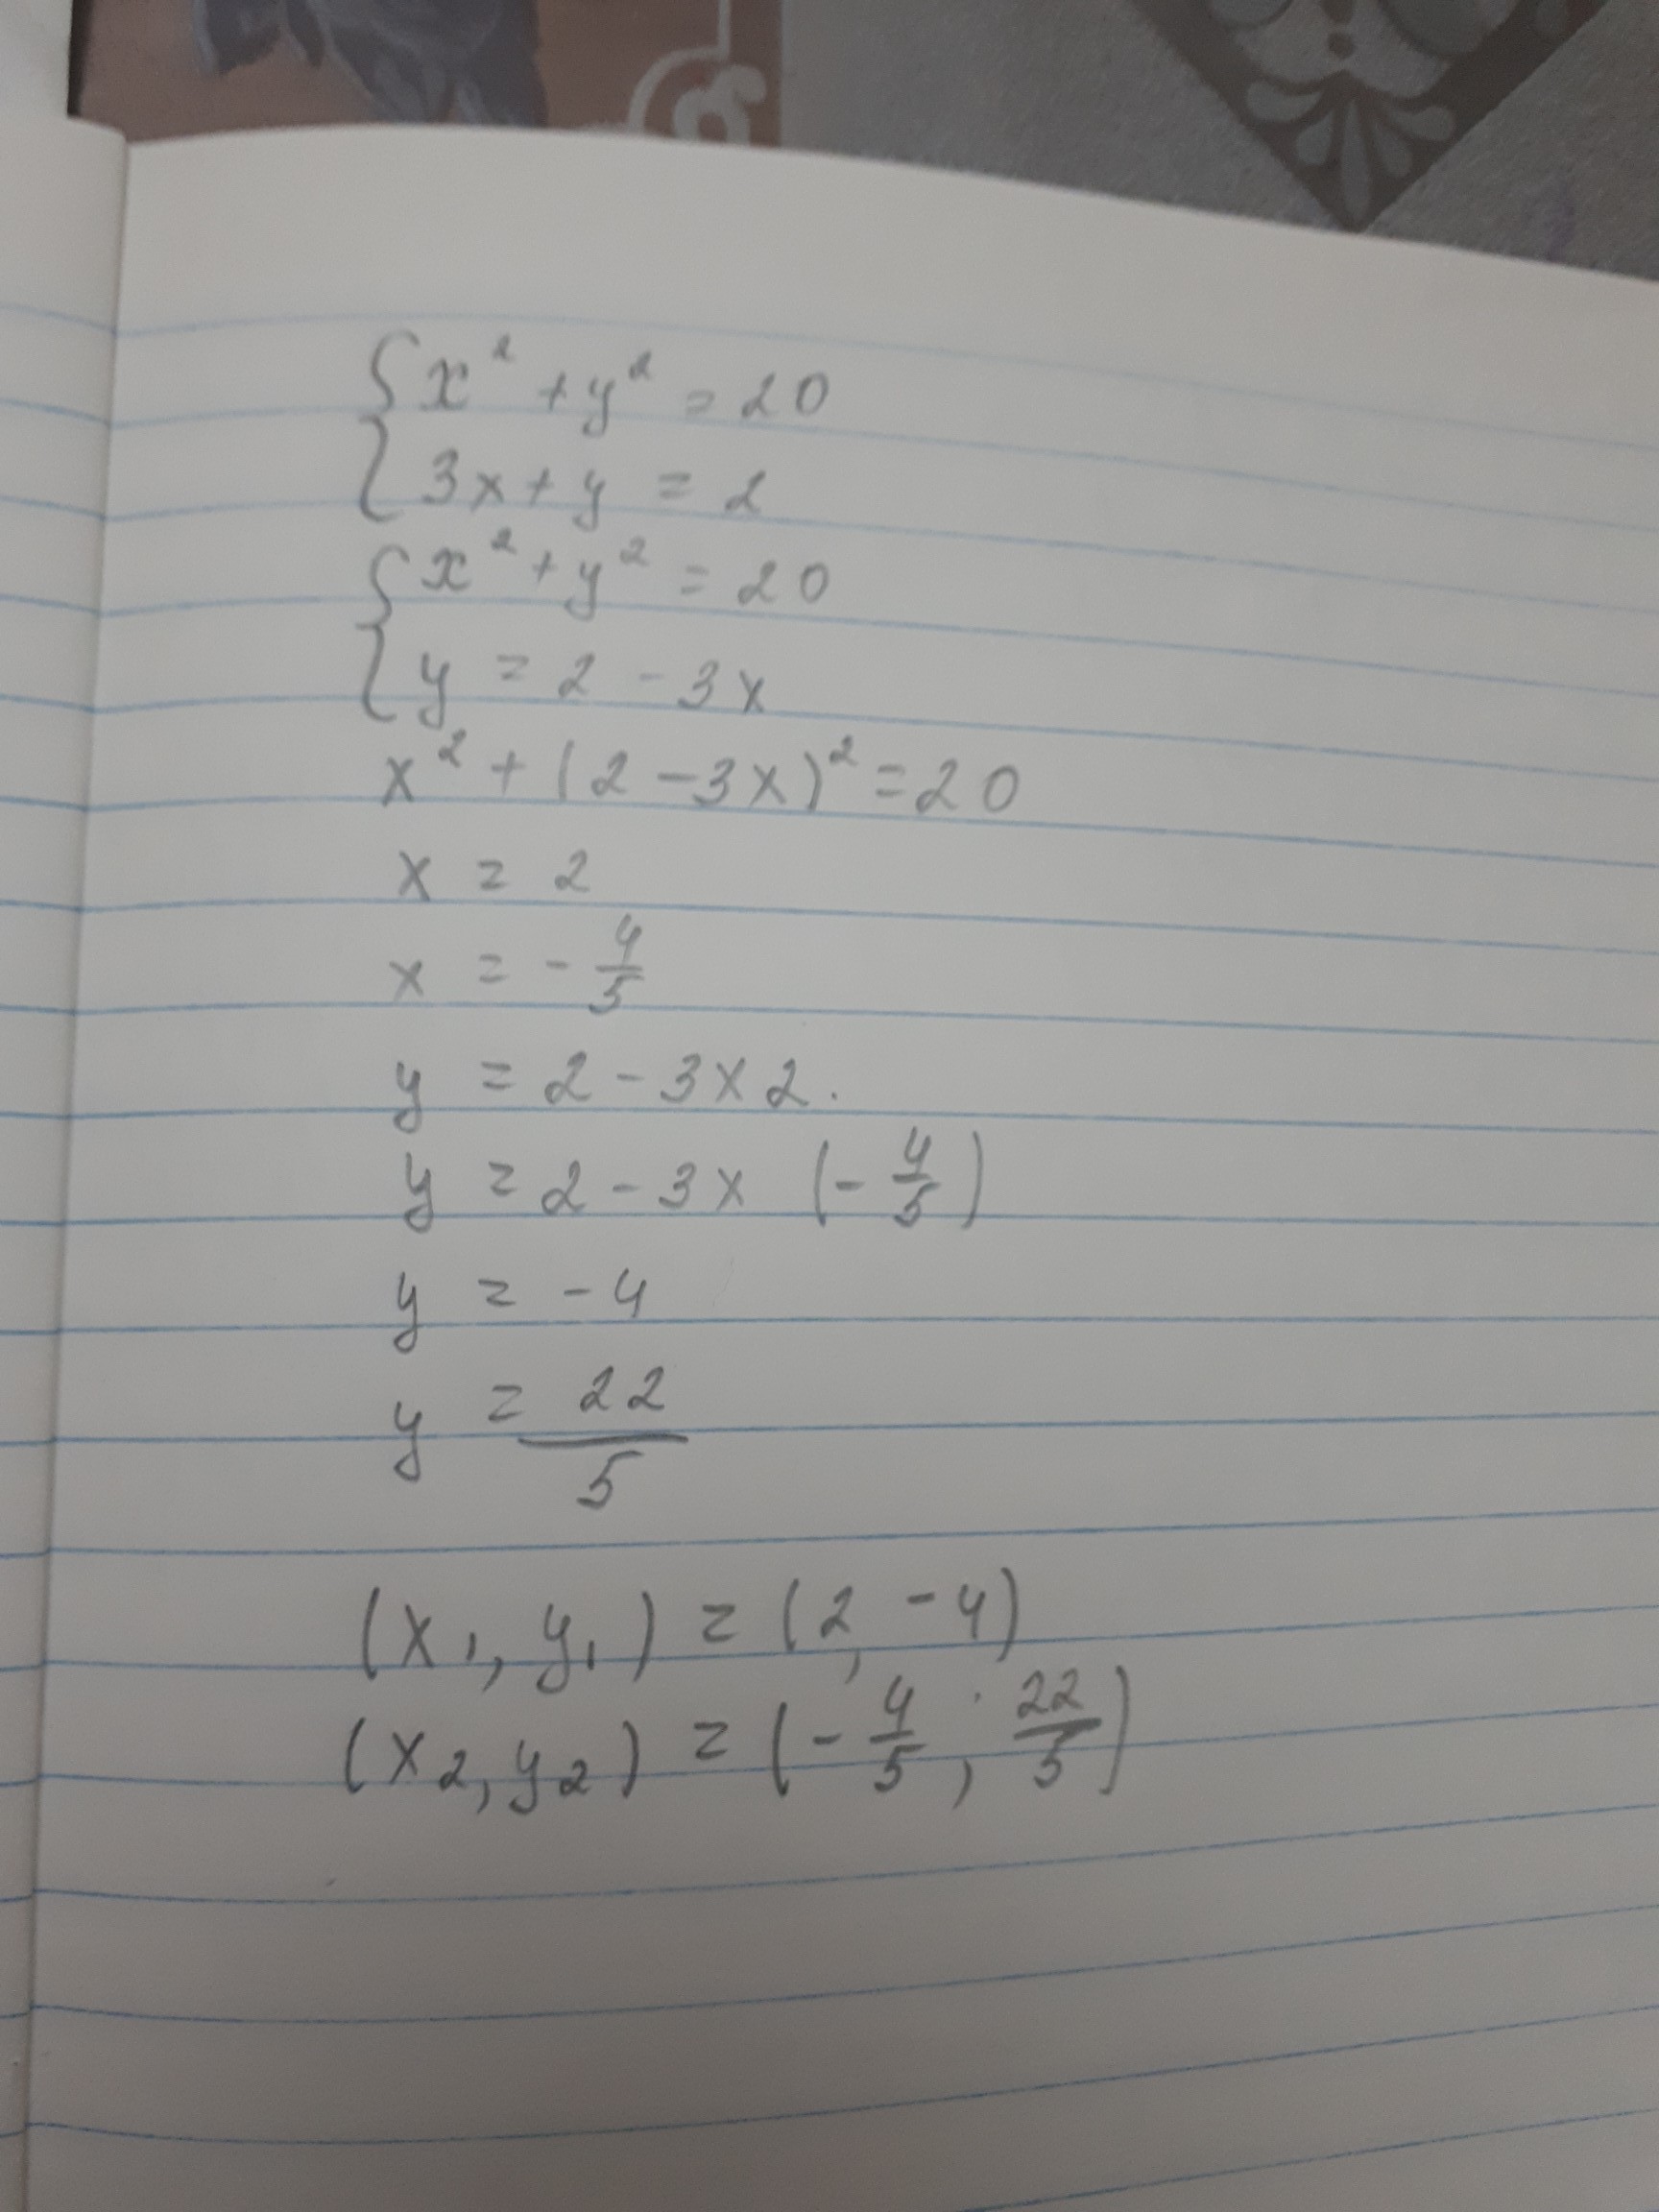 { x² + y² = 20
{ 3x + y = 2
{ x² + y² = 20
{ y = 2 - 3x
x² + (2 - 3x)² = 20
x = 2
x = - 4/5
y = 2 - 3 x 2.
y = 2 - 3 x (- 4/5)
y = - 4
y = 22/5
(x₁, y₁) = (2, -4)
(x₂, y₂) = (- 4/5, 22/5)